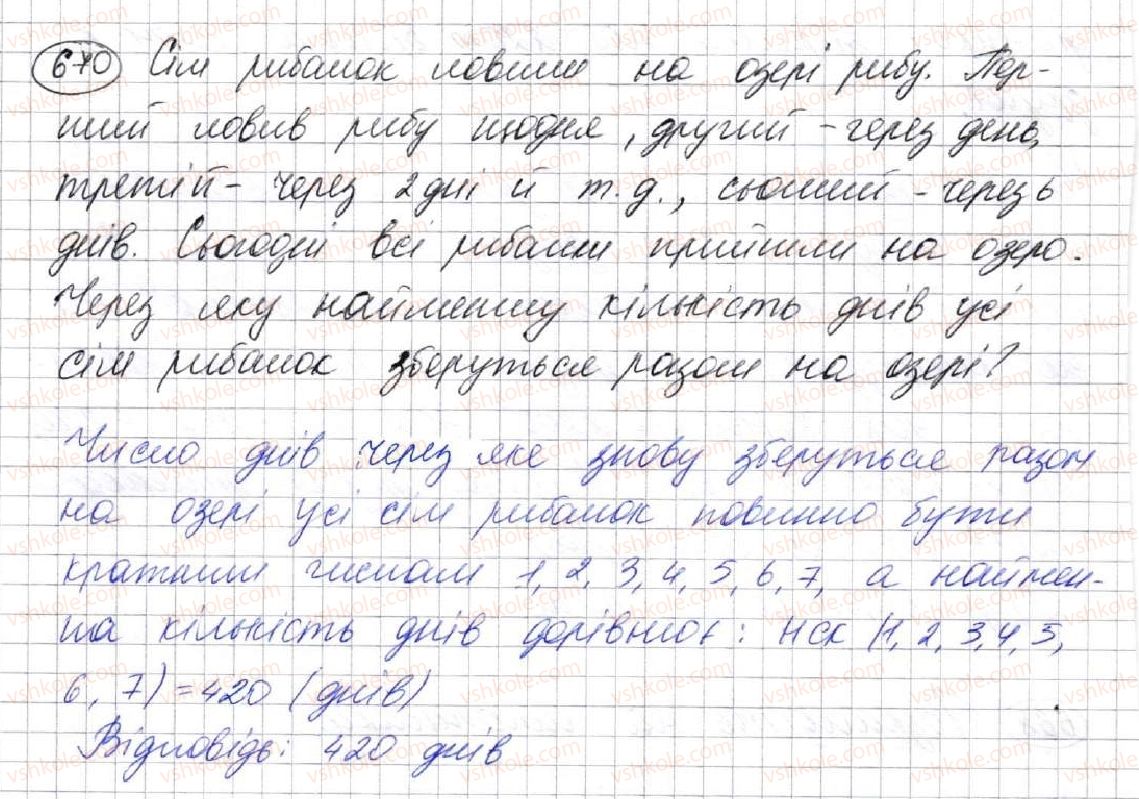 670 Сім рибалок ловили на озері рибу. Пер-
ший ловив рибу щодня, другий - через день,
третій - через 2 дні й т.д., сьомий - через 6
днів. Сьогодні всі рибалки прийшли на озеро.
Через яку найменшу кількість днів усі
сім рибалок зберуться разом на озері?
Число днів через яке знову зберуться разом
на озері усі сім рибалок повинно бути
кратним числам 1, 2, 3, 4, 5, 6, 7, а наймен-
ша кількість днів дорівнює: НСК (1, 2, 3, 4, 5,
6, 7) = 420 (днів)
Відповідь: 420 днів